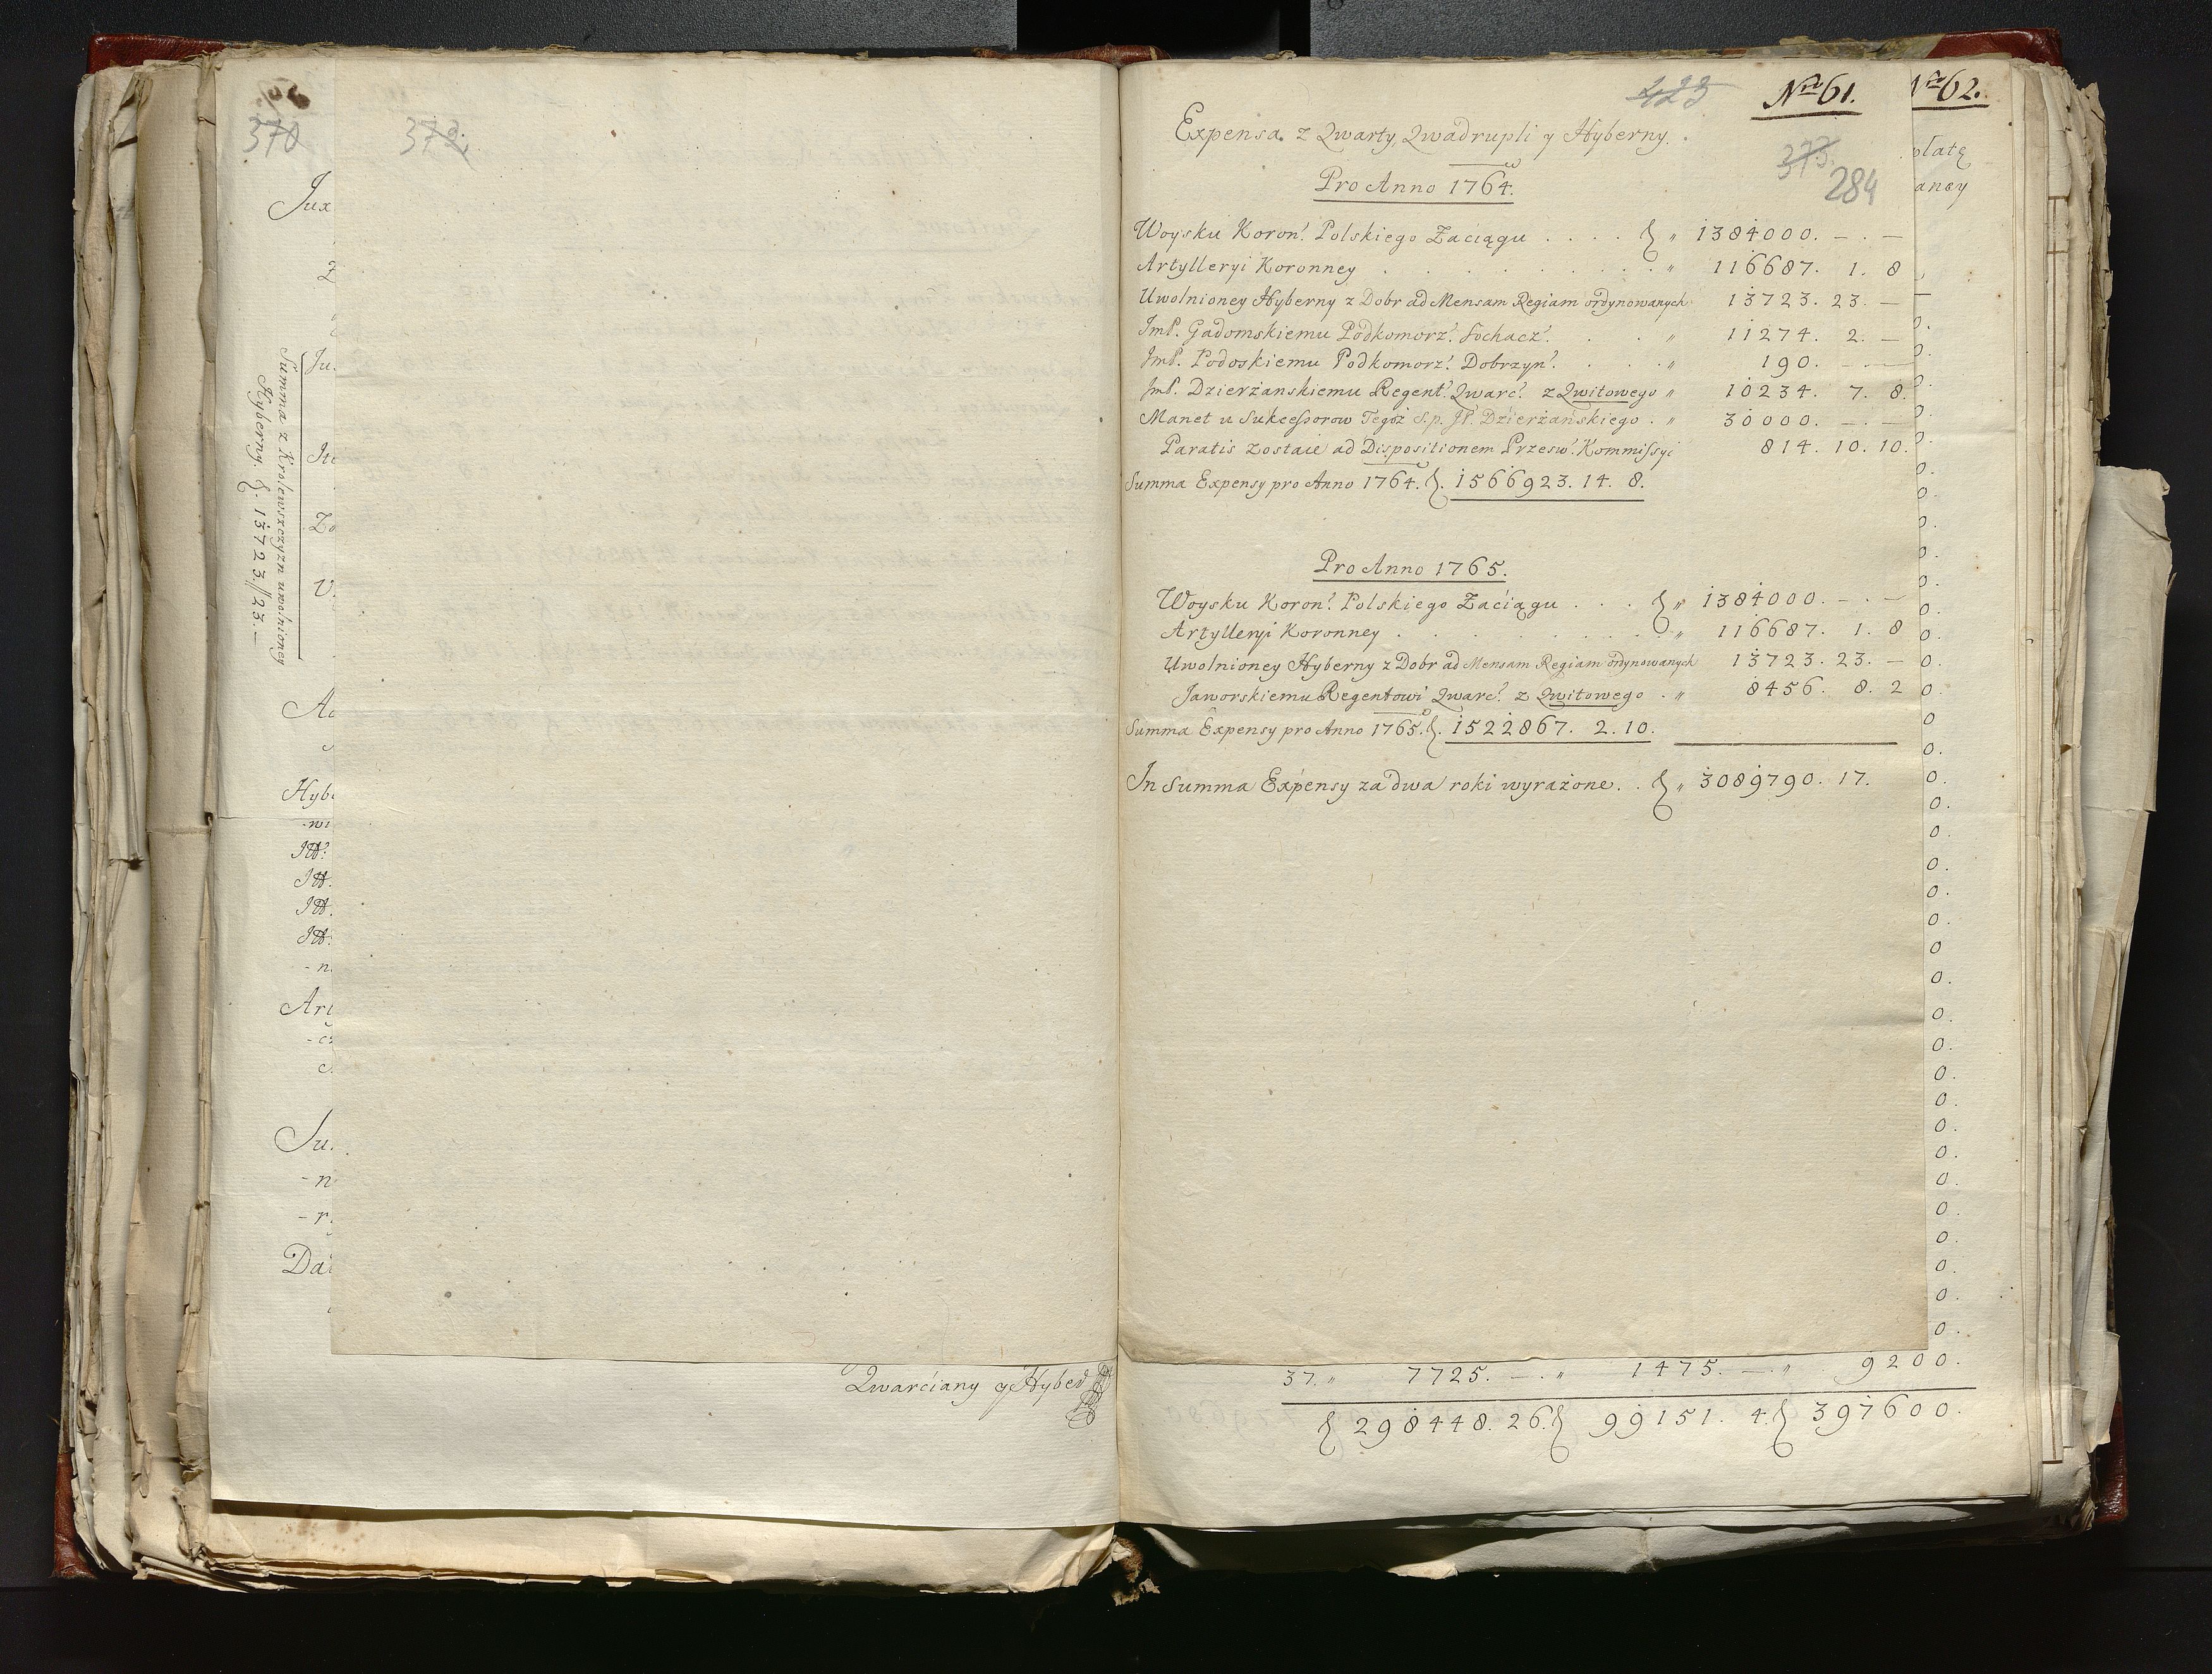 370
372.
Jux
Z
Ju.
Summa z Krolewszczyzn uwolnioney
Hyberny. 13723.//23.—
Ite
Zo
V.
Ac
Hybe
-wi
JW:
JW.
JW.
JW.
- n.
Art
- cz
Su.
- n
- r.
Dat
Qwarćiany y Hyber
423
Nro 61.
373.
284
Expensa z Qwarty, Qwadrupli y Hyberny.
Pro Anno 1764.
Woysku Koron: Polskiego Zaciągu . . . . " 1384000. — . —
Artylleryi Koronney . . . . . . . . . " 116687. 1. 8
Uwolnioney Hyberny z Dobr ad Mensam Regiam ordynowanych 13723. 23. —
ImP. Gadomskiemu Podkomorz: Sochacz: . . " 11274. 2. —
ImP. Podoskiemu Podkomorz: Dobrzyn: . . . " 190. — . —
ImP. Dzierżanskiemu Regent: Qwarc: z Qwitowego " 10234. 7. 8.
Manet u Sukcessorow Tegoż S.p. JP. Dzierżańskiego . " 30000. — . —
Paratis zostaie ad Dispositionem Przesw: Kommissyi 814. 10. 10.
Summa Expensy pro Anno 1764. 1566923. 14. 8.
Pro Anno 1765.
Woysku Koron: Polskiego Zaciągu . . . " 1384000. — . —
Artylleryi Koronney . . . . . . . . " 116687. 1. 8
Uwolnioney Hyberny z Dobr ad Mensam Regiam ordynowanych 13723. 23. —
Jaworskiemu Regentowi Qwarc: z Qwitowego . " 8456. 8. 2
Summa Expensy pro Anno 1765. 1522867. 2. 10.
In Summa Expensy za dwa roki wyrażone. . " 3089790. 17.
Nro 62.
płatę
aney
37. " 7725. — . " 1475. — . " 9200.
298448. 26. 99151. 4. 397600.